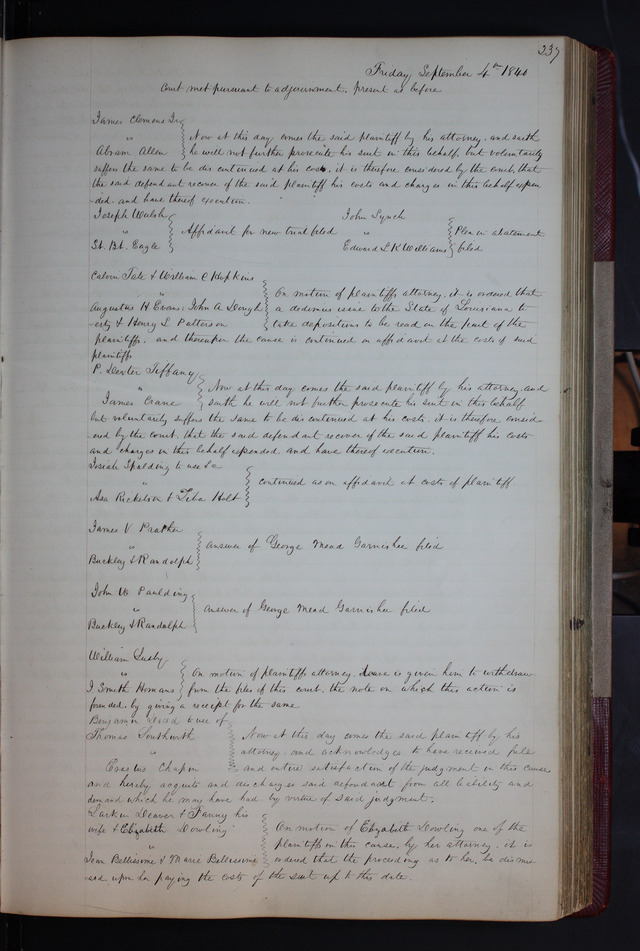 237
Friday September 4th 1840
Court met pursuant to adjournment, present as before
James Clemens Jr
"
Abram Allen
Now at this day comes the said plaintiff by his attorney, and saith
he will not further prosecute his suit in this behalf, but voluntarily
suffers the same to be discontinued at his costs, it is therefore considered by the court, that
the said defendant recover of the said plaintiff his costs and charges in this behalf expen
ded, and have thereof execution.
Joseph Walsh
"
St. Bt. Eagle
Affidavit for new trial filed
John Lynch
"
Edward L K Williams
Plea in abatement
filed
Calvin Tate & William C Hopkins
"
Augustus H Evans, John A Dough
erty & Henry L Patterson
On motion of plaintiffs attorney, it is ordered that
a dedimus issue to the State of Louisiana to
take depositions to be read on the part of the
plaintiffs, and thereupon the cause is continued on affidavit at the costs of said
plaintiffs
P. Dexter Tiffany
"
James Crane
Now at this day comes the said plaintiff by his attorney, and
saith he will not further prosecute his suit in this behalf
but voluntarily suffers the same to be discontinued at his costs, it is therefore consid
ered by the court, that the said defendant recover of the said plaintiff his costs
and charges in this behalf expended, and have thereof execution.
Josiah Spalding to use &c
"
Asa Rickelson & Holt
continued as on affidavit at costs of plaintiff
James V Prather
"
Buckley & Randolph
answer of George Mead Garnishee filed
John W Paulding
"
Buckley & Randolph
answer of George Mead Garnishee filed
William Lusby
"
I Smith Homans
On motion of plaintiffs attorney, leave is given him to withdraw
from the files of this court, the note on which this action is
founded, by giving a receipt for the same
Benjamin to use of
Thomas Southworth
"
Erastus Chapin
Now at this day comes the said plaintiff by his
attorney, and acknowledges to have received full
and entire satisfaction of the judgment in this cause
and hereby acquits and discharges said defendant from all liability and
demand which he may have had by virtue of said judgment.
Larkin Deaver & Fanny his
wife & Elizabeth Dowling
"
Jean Bellissime & Marie Bellissime
On motion of Elizabeth Dowling one of the
plaintiffs in this cause, by her attorney, it is
ordered that the proceeding as to her, be dismis
sed upon her paying the costs of the suit up to this date.